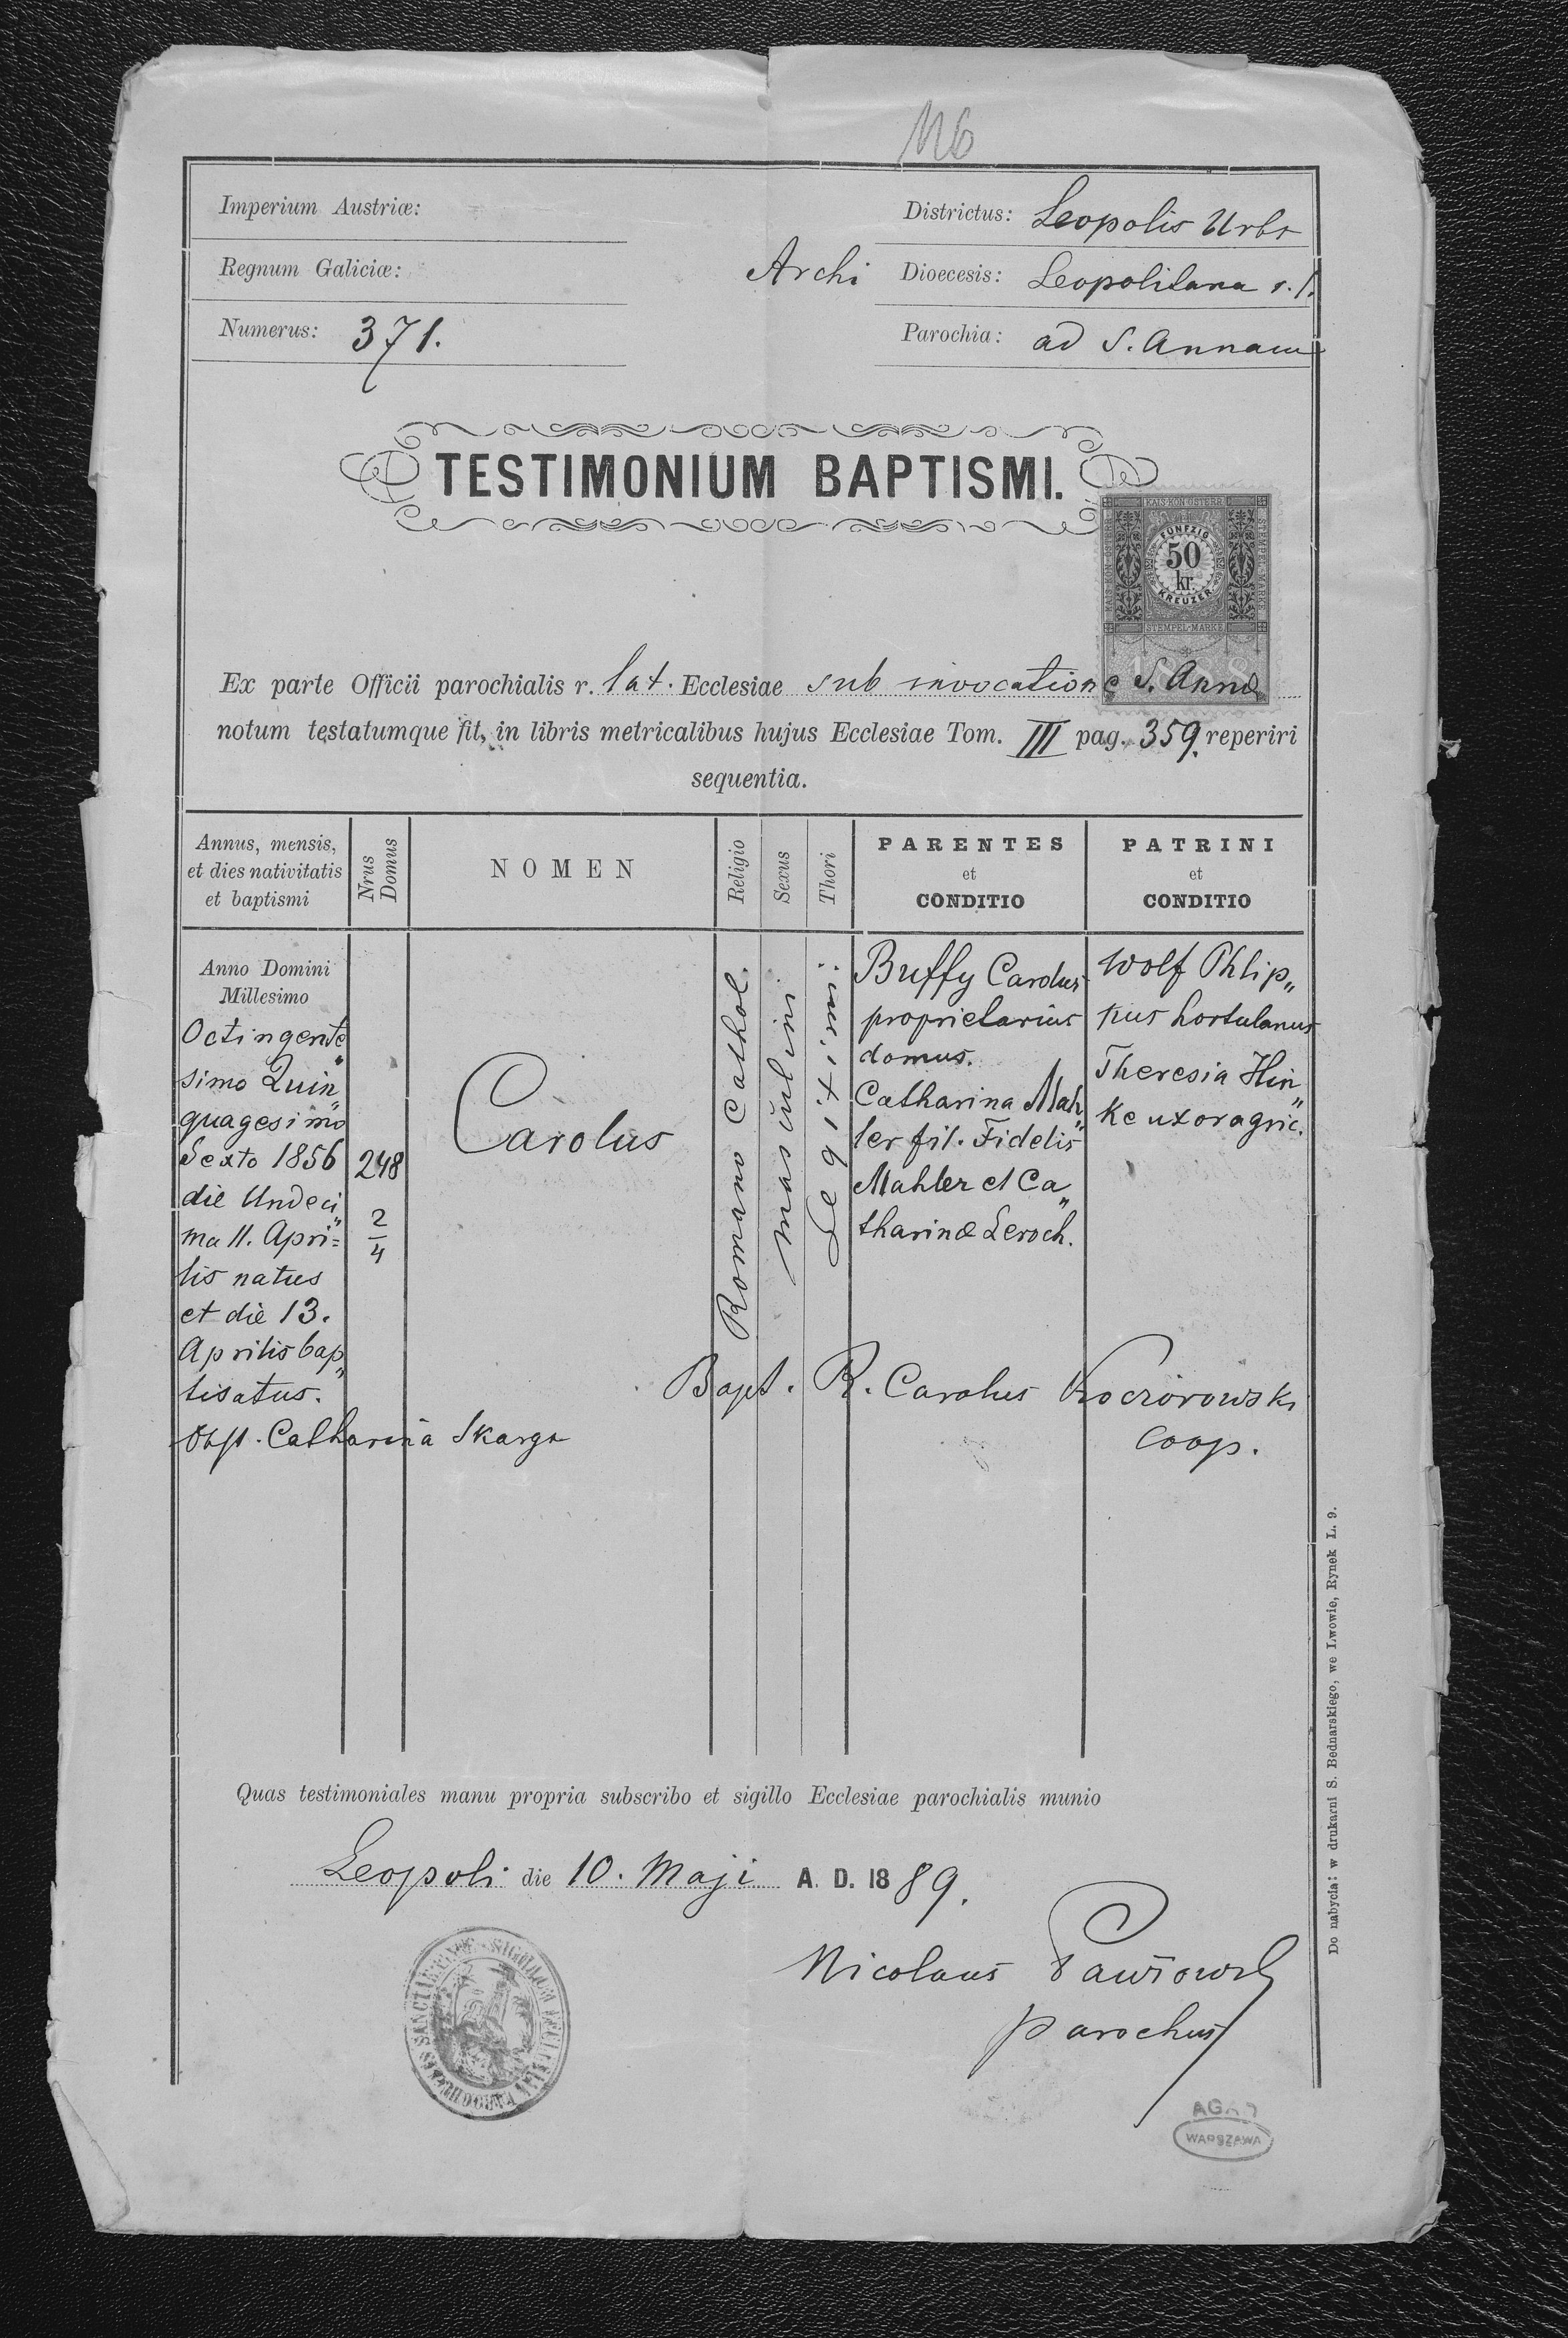 116
Imperium Austriæ:
Regnum Galiciæ:
Numerus: 371.
Districtus: Leopolis Urbs
Archi Dioecesis: Leopolitana r. l.
Parochia: ad S. Annam
TESTIMONIUM BAPTISMI.
KAIS. KÖN. ÖSTERR.
STEMPEL-MARKE
FÜNFZIG
50
kr.
KREUZER
STEMPEL-MARKE
1888
Ex parte Officii parochialis r. lat. Ecclesiae sub invocatione S. Annæ
notum testatumque fit, in libris metricalibus hujus Ecclesiae Tom. III pag. 359. reperiri
sequentia.
Annus, mensis,
et dies nativitatis
et baptismi
Nrus
Domus
NOMEN
Religio
Sexus
Thori
PARENTES
et
CONDITIO
PATRINI
et
CONDITIO
Anno Domini
Millesimo
Octingente„
simo Quin„
quagesimo
Sexto 1856
die Undeci„
ma 11. Apri=
lis natus
et die 13.
Aprilis bap„
tisatus.
Obst. Catharina Skarga
248
2/4
Carolus
Romano Cathol.
masculini
Legitimi.
Buffy Carolus
proprietarius
domus.
Catharina Mah„
ler fil. Fidelis
Mahler et Ca„
tharinæ Leroch.
Wolf Phlip„
pus hortulanus
Theresia Hin„
ke uxor agric.
Bapt. R. Carolus Koczorowski
Coop.
Quas testimoniales manu propria subscribo et sigillo Ecclesiae parochialis munio
Leopoli die 10. Maji A. D. 1889.
Nicolaus
parochus
AGAD
WARSZAWA
Do nabycia: w drukarni S. Bednarskiego, we Lwowie, Rynek L. 9.